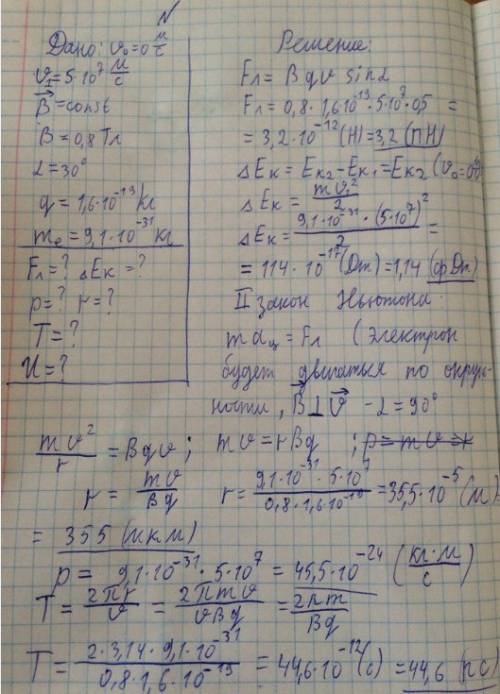 N
Дано: v₀=0 м/с
v₁=5·10⁷ м/с
B⃗=const
B=0,8 Тл
α=30°
q=1,6·10⁻¹⁹ кг
mₑ=9,1·10⁻³¹ кг
Fл=? ΔEк=?
p=? r=?
T=?
И=?
Решение:
Fл=Bqv sinα
Fл=0,8·1,6·10⁻¹⁹·5·10⁷·0,5=
=3,2·10⁻¹²(Н)=3,2(пН)
ΔEк=Eк₂-Eк₁=Eк₂(v₀=0)
ΔEк=mv₁²/2
ΔEк=9,1·10⁻³¹·(5·10⁷)²/2=
=114·10⁻¹⁷(Дж)=1,14(фДж)
II закон Ньютона
maц=Fл (электрон
будет двигаться по окруж-
ности, B⊥v⃗ - α=90°
mv²/r=Bqv; mv=rBq; p=mv=r
r=mv/Bq r=9,1·10⁻³¹·5·10⁷/0,8·1,6·10⁻¹⁹=35,5·10⁻⁵(м)
=355(мкм)
p=9,1·10⁻³¹·5·10⁷=45,5·10⁻²⁴(кг·м/с)
T=2πr/v=2πmv/vBq=2πm/Bq
T=2·3,14·9,1·10⁻³¹/0,8·1,6·10⁻¹⁹=44,6·10⁻¹²(с)=44,6(пс)